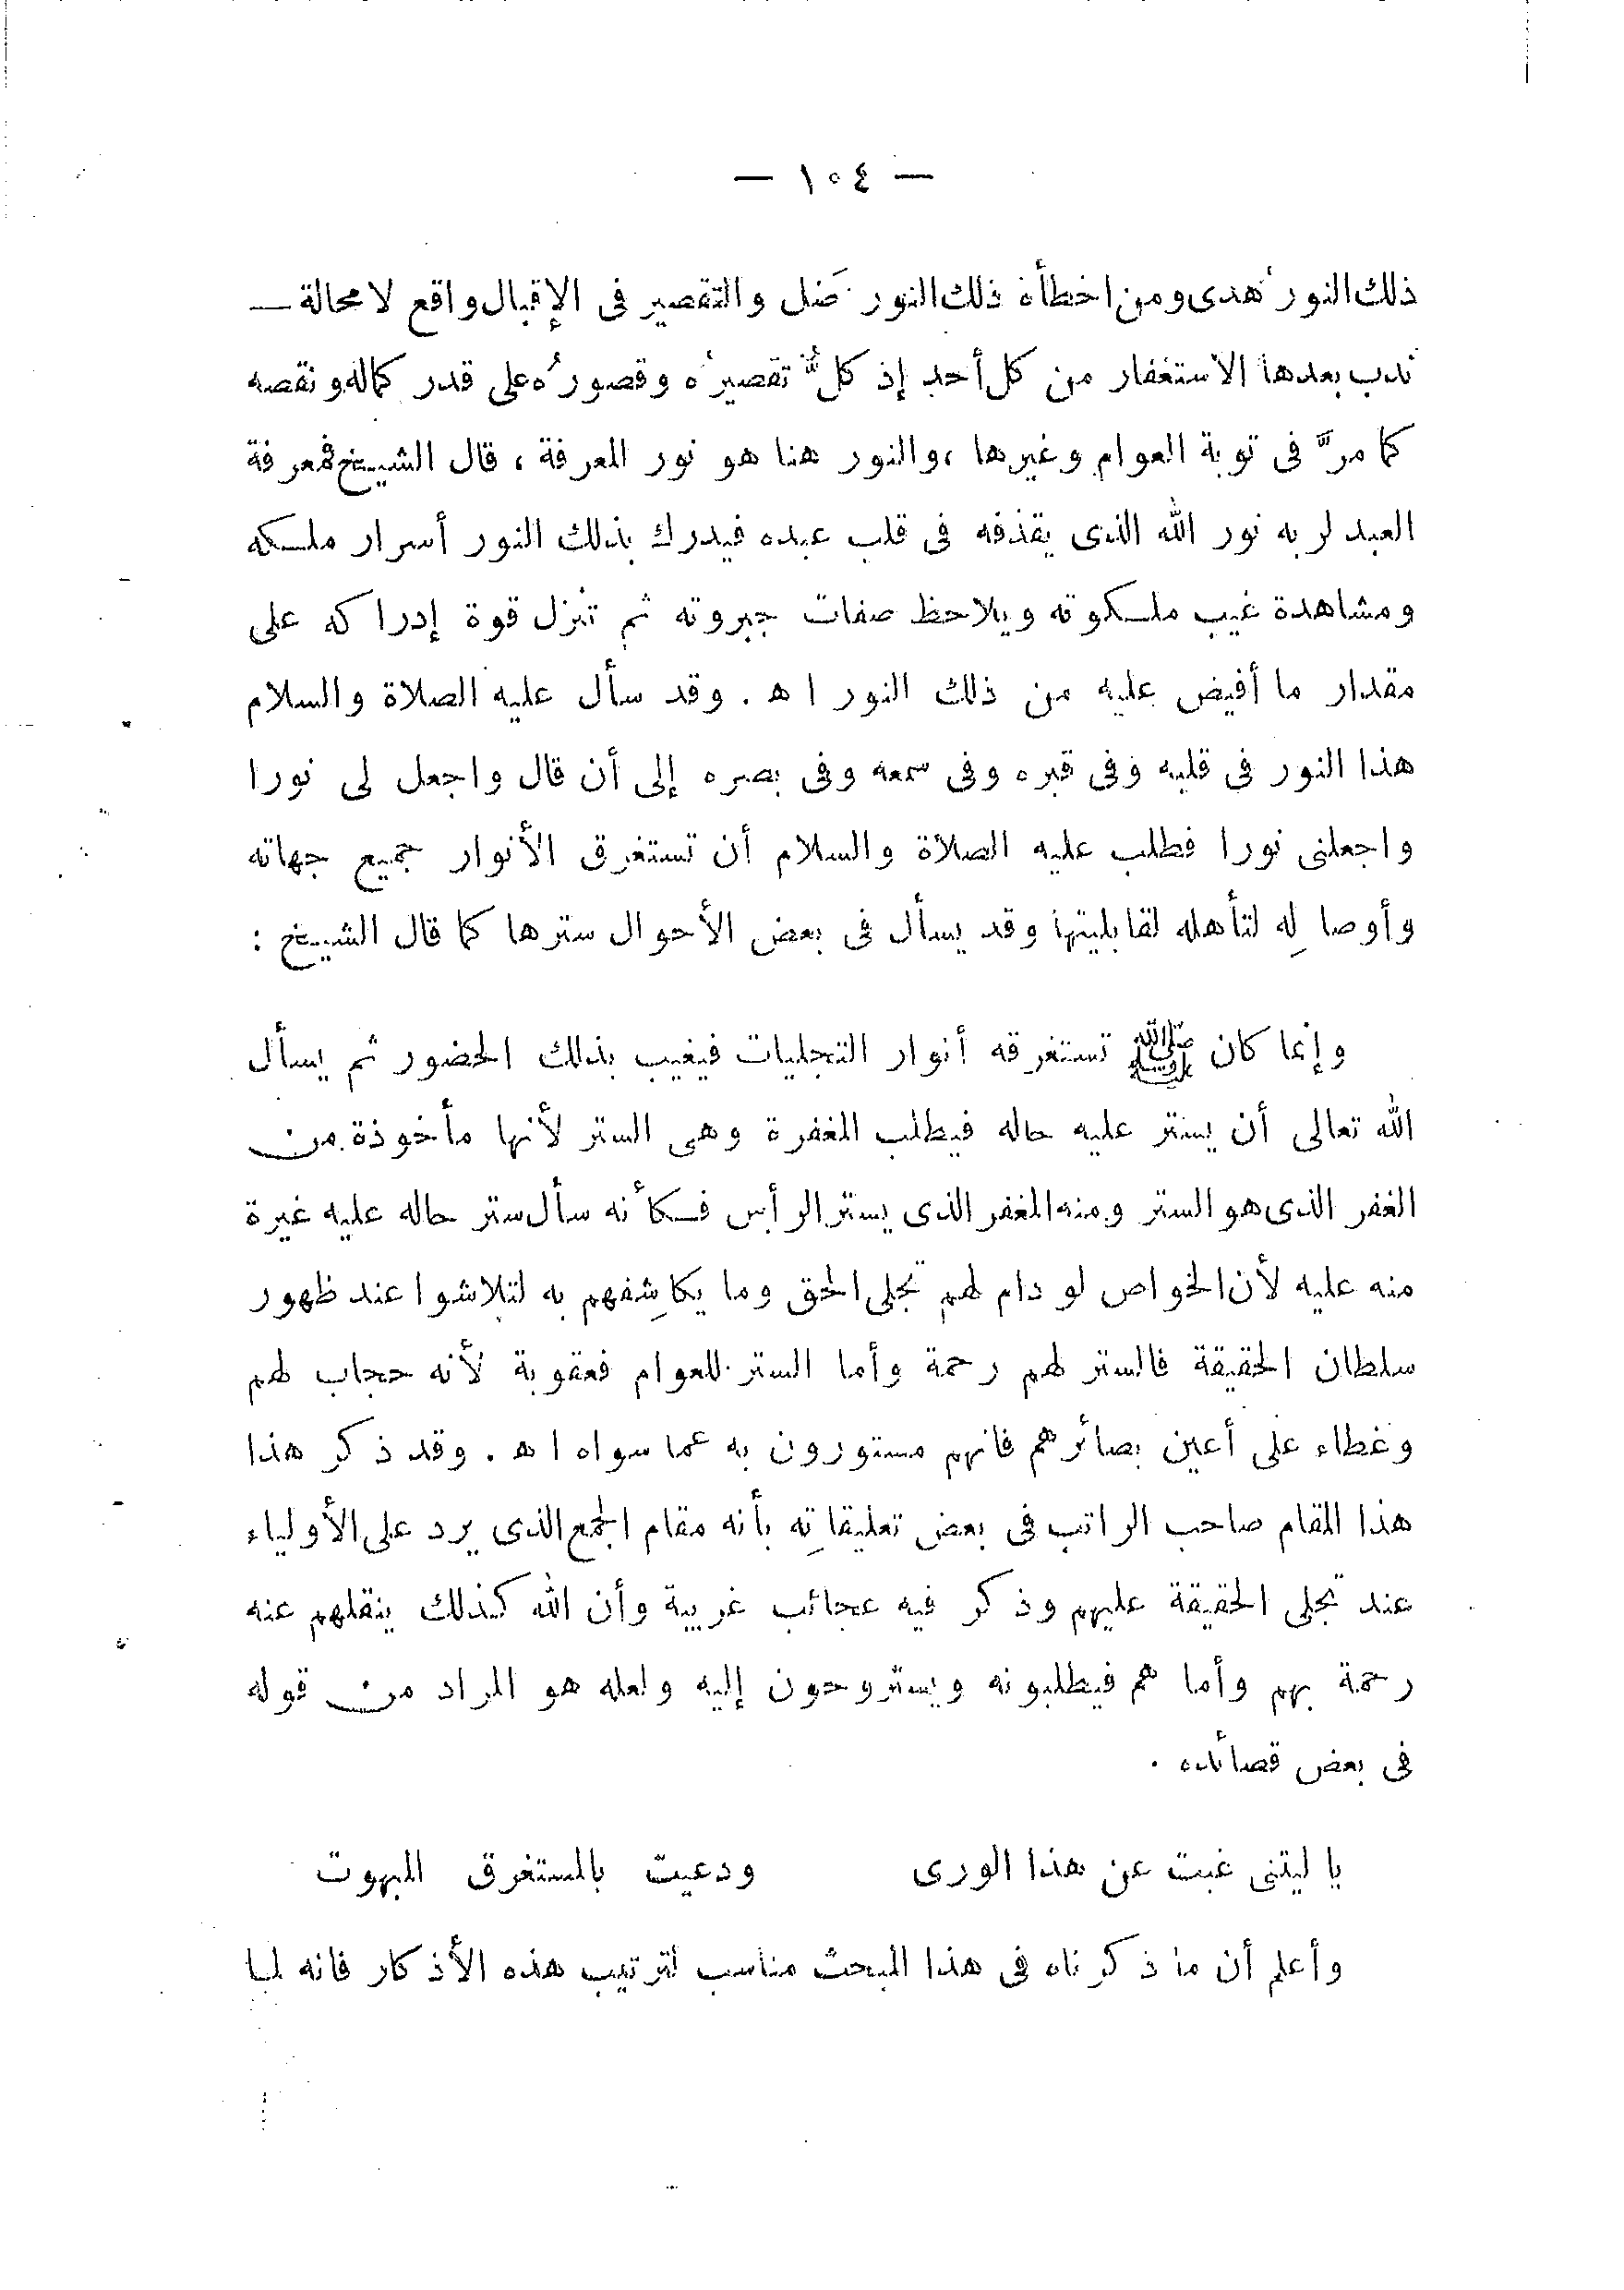 — ١٠٤ —
ذلك النور ُهدى ومن اخطأه ذلك النور ضَل والتقصير فى الإقبال واقع لا محالة —
ندب بعدها الاستغفار من كل أحد إذ كلٌّ تقصيرُه وقصورُه على قدر كماله ونقصه
كما مرَّ فى توبة العوام وغيرها ، والنور هنا هو نور المعرفة ، قال الشيخ فمعرفة
العبد لربه نور الله الذى يقذفه فى قلب عبده فيدرك بذلك النور أسرار ملكه
ومشاهدة غيب ملكوته ويلاحظ صفات جبروته ثم تنزل قوة إدراكه على
مقدار ما أفيض عليه من ذلك النور ا ه . وقد سأل عليه الصلاة والسلام
هذا النور فى قلبه وفى قبره وفى سمعه وفى بصره إلى أن قال واجعل لى نورا
واجعلنى نورا فطلب عليه الصلاة والسلام أن تستغرق الأنوار جميع جهاته
وأوصالِه لتأهله لقابليتها وقد يسأل فى بعض الأحوال سترها كما قال الشيخ :
وإنما كان ﷺ تستغرقه أنوار التجليات فيغيب بذلك الحضور ثم يسأل
الله تعالى أن يستر عليه حاله فيطلب المغفرة وهى الستر لأنها مأخوذة من
الغفر الذى هو الستر ومنه المغفر الذى يستر الرأس فكأنه سأل ستر حاله عليه غيرة
منه عليه لأن الخواص لو دام لهم تجلى الحق وما يكاشِفهم به لتلاشوا عند ظهور
سلطان الحقيقة فالستر لهم رحمة وأما الستر للعوام فعقوبة لأنه حجاب لهم
وغطاء على أعين بصائرهم فانهم مستورون به عما سواه ا ه . وقد ذكر هذا
هذا المقام صاحب الراتب فى بعض تعليقاتِه بأنه مقام الجمع الذى يرد على الأولياء
عند تجلى الحقيقة عليهم وذكر فيه عجائب غريبة وأن الله كذلك ينقلهم عنه
رحمة بهم وأما هم فيطلبونه ويستروحون إليه ولعله هو المراد من قوله
فى بعض قصائده .
يا ليتنى غبت عن هذا الورى ودعيت بالمستغرق المبهوت
وأعلم أن ما ذكرناه فى هذا المبحث مناسب لترتيب هذه الأذكار فانه لما